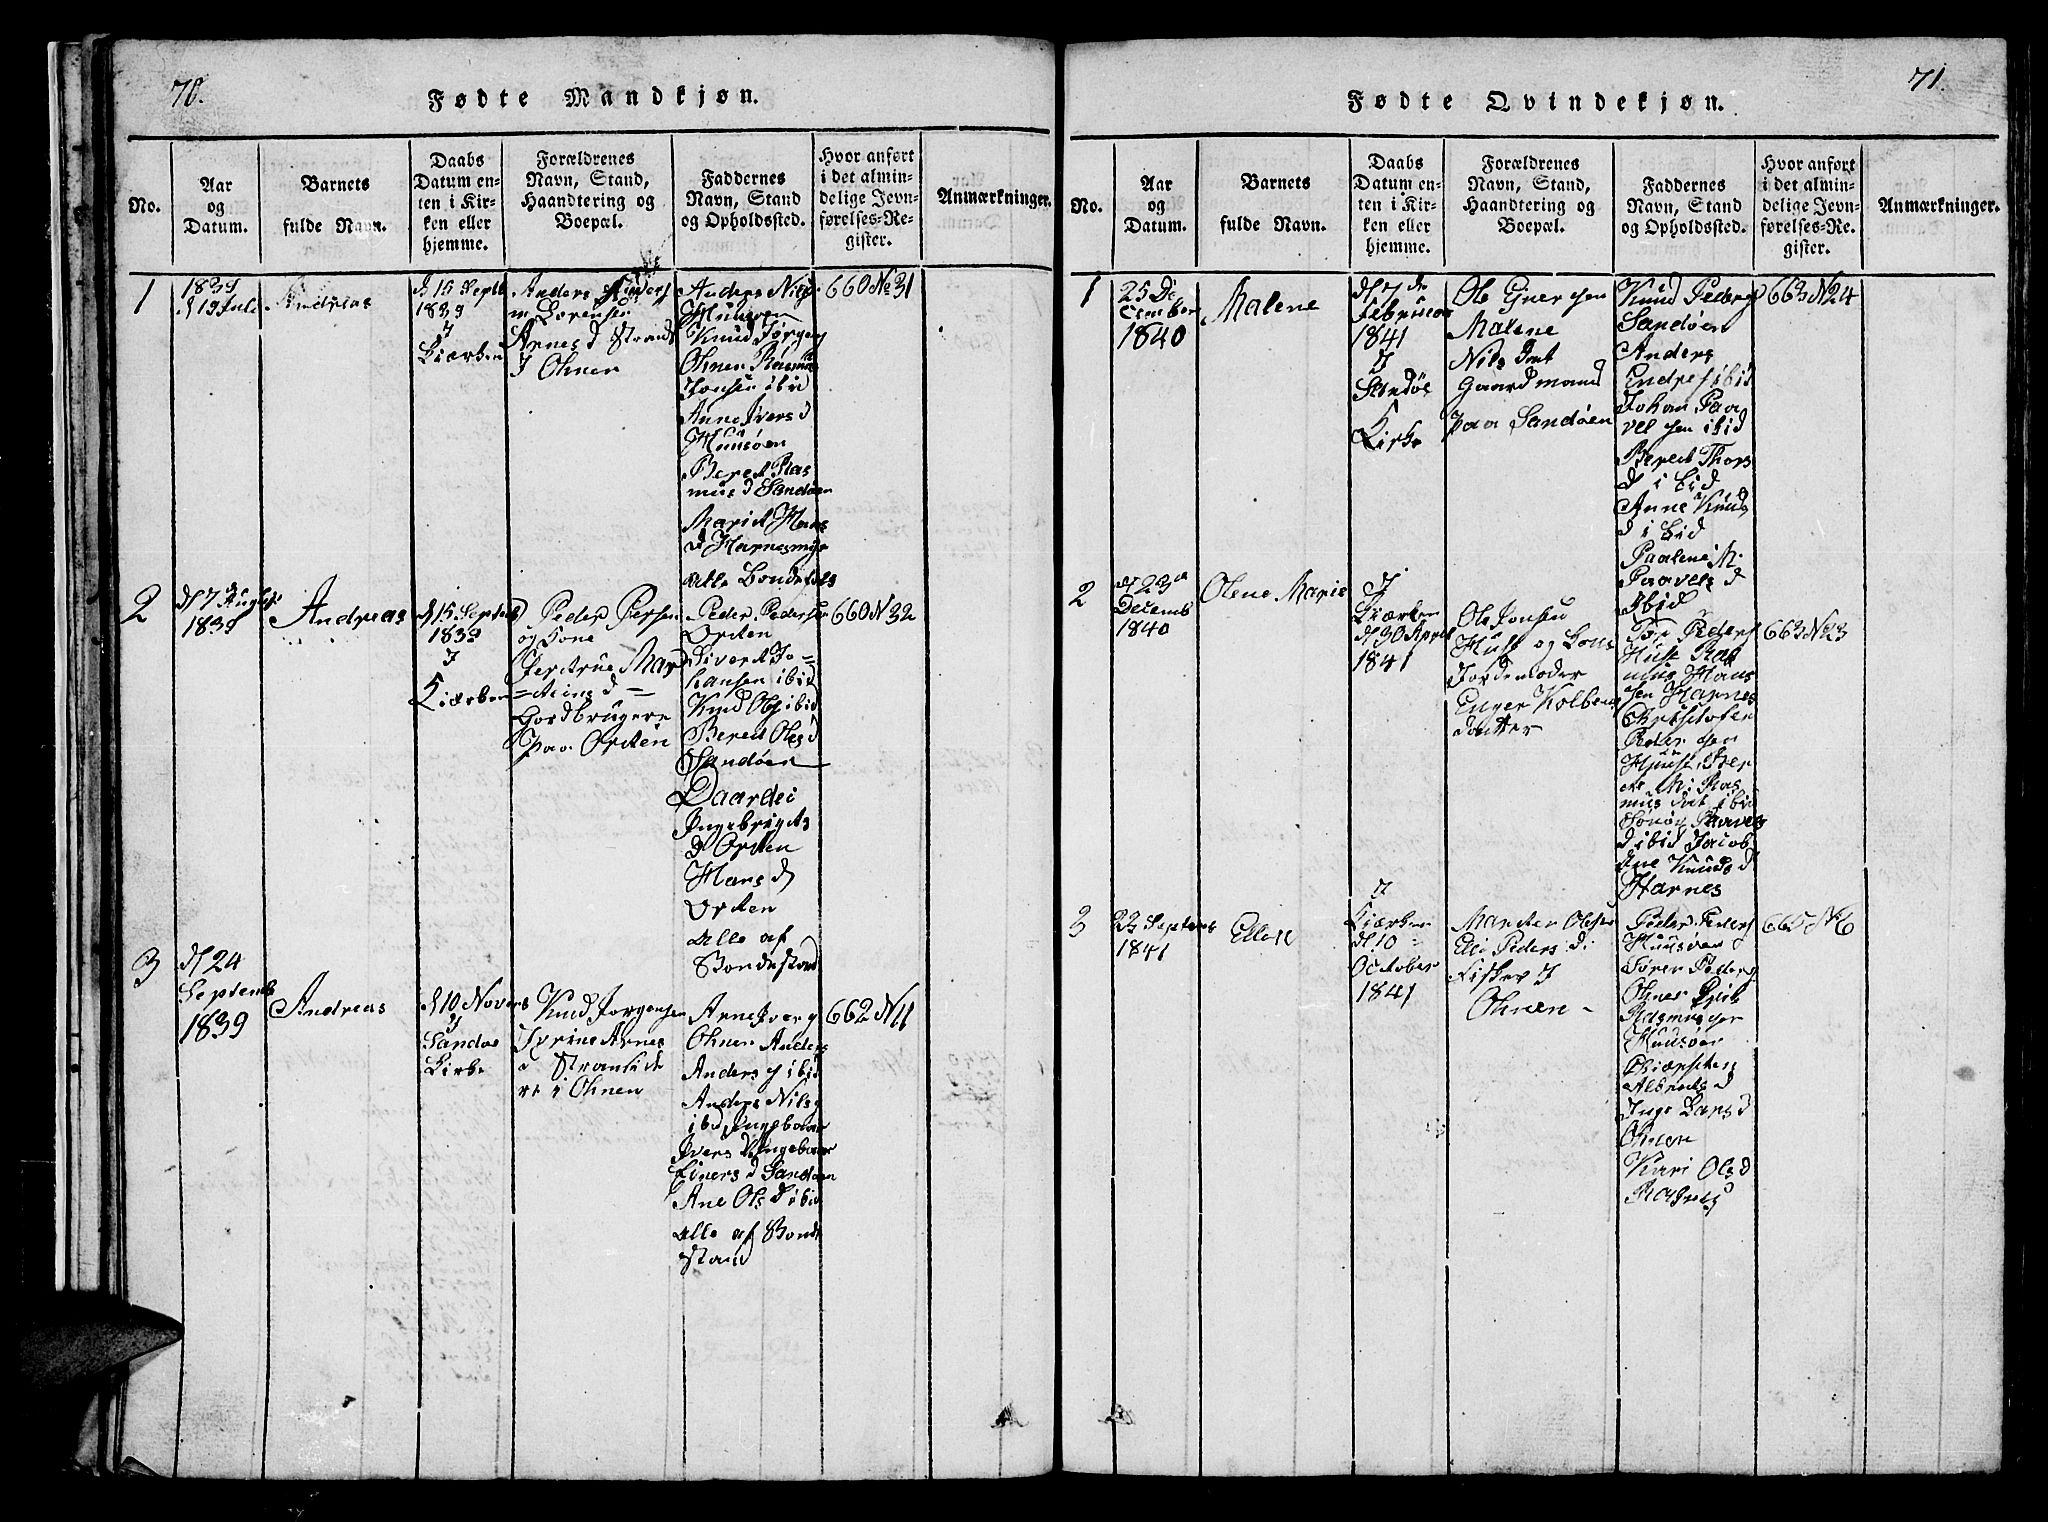 70.
Fødte Mandkjøn.
No.
Aar
og
Datum.
Barnets
fulde Navn.
Daabs
Datum en-
ten i Kir-
ken eller
hjemme.
Forældrenes
Navn, Stand,
Haandtering og
Boepæl.
Faddernes
Navn, Stand
og Opholdssted.
Hvor anført
i det almin-
delige Jevn-
førelses-Re-
gister.
Anmærkninger.
1
1839
d 19 Juli
Andreas
d 15 Septb
1839
I
Kiærken
Anders
Sørense
Arnes d Strands
I Ohnen
Anders Nils
Knud Jørgens
Ohnen Rasmus
Jonsen ibid
Anne Ivers d
Huusøen
Bered Ras
mus d Sandøen
Marit Hans
d Harnesmyr
alle Bondefolk
660 No 31
2
d 7 August
1839
Andreas
d 15 Septemb
1839
I
Kiærken
Peder Persen
og Kone
Jertrue Mar
=tins d=
Gordbrugere
paa Orten
Peder Peders
Orten
Sivert Jo=
hansen ibid
Knud Ols ibid
Bered Oles d
Sandøen
Baardei
Ingebrigts
d Orten
Hans d
Orten
alle af
Bondestand
660 N 32
3
d 24
Septemb
1839
Andreas
d 10 Novem
I
Sandøe
Kirke
Knud Jørgensen
Arnes
d Strandside
re i Ohnen
Arne Iverg
Ohnen Anders
Anders s ibid
Anders Nils
ibid Ingeboer
Ivers d Ingeboer
Einers d Sandøen
Ane Ols d ibid
alle af Bonde
stand
662 N 11
71.
Fødte Qvindekjøn.
No.
Aar
og
Datum.
Barnets
fulde Navn.
Daabs
Datum en-
ten i Kir-
ken eller
hjemme.
Forældrenes
Navn, Stand,
Haandtering og
Boepæl.
Faddernes
Navn, Stand
og Opholdssted.
Hvor anført
i det almin-
delige Jevn-
førelses-Re-
gister.
Anmærkninger.
1
25 De
cember
1840
Malene
d 7 de
Februar
1841
I
Sandøe
Kirke
Ole Einersen
Malene
Nils Dat
Gaardmand
paa Sandøen
Knud Peders
Sandøen
Anders
Endres ibid
Johan Paa
vel sen ibid
Bereit Thors
d ibid
Anne Knuds
d ibid
Paaline M.
Paavels d
Ibid
663 N 24
2
d 23 d
Decemb
1840
Olene Marie
I
Kiærken
d 30 April
1841
Ole Jonsen
Huse og Kone
Jordemoder
Enger Kolbens
datter
Peders
Huse Ras
mus Hans
sen Harnes
Christofer
Peder sen
Huuse Ber
et M. Ras
mus dat ibid
Paavels
d ibid Jacob
ine Knuds d
Harnes
663 N 23
3
23 Septemb
1841
Elen
I
Kiærken
d 10
October
1841
Olesen
Eli Peders d
Fisker I
Ohnen
Peder Peders
Huusøen
Sören Peders
Ohnen Erik
Rasmussen
Huusøen
Albrets d
Inge Lars d
Ohnen
Kari Ols d
665 N 6